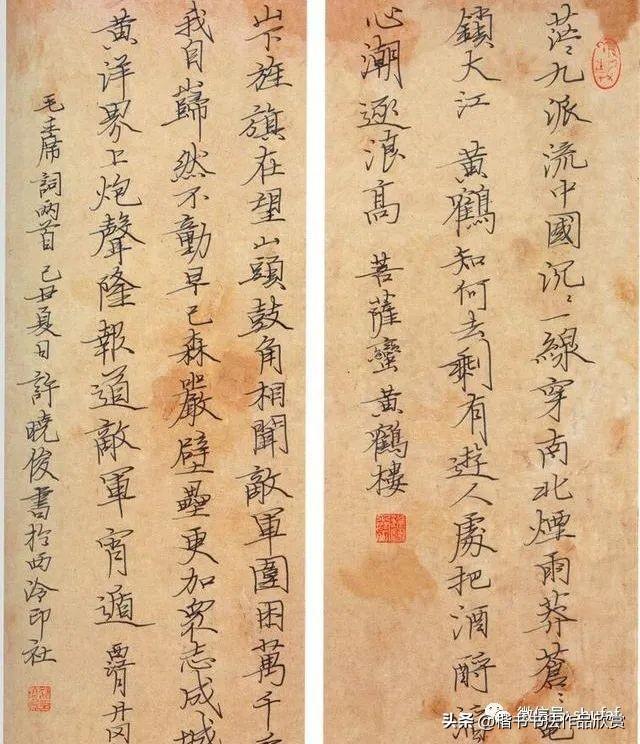 茫〻九派流中國沉〻一線穿南北煙雨莽蒼〻龜
鎖大江 黃鶴知何去剩有遊人處把酒酹滔
心潮逐浪高 菩薩蠻黃鶴樓
山下旌旗在望山頭鼓角相聞敵軍圍困萬千重
我自巋然不動早已森嚴壁壘更加眾志成城
黃洋界上炮聲隆報道敵軍宵遁 西江月井岡
毛主席詞兩首 己丑夏日許曉俊書於西泠印社
微信号:
头条 @楷书书法作品欣赏